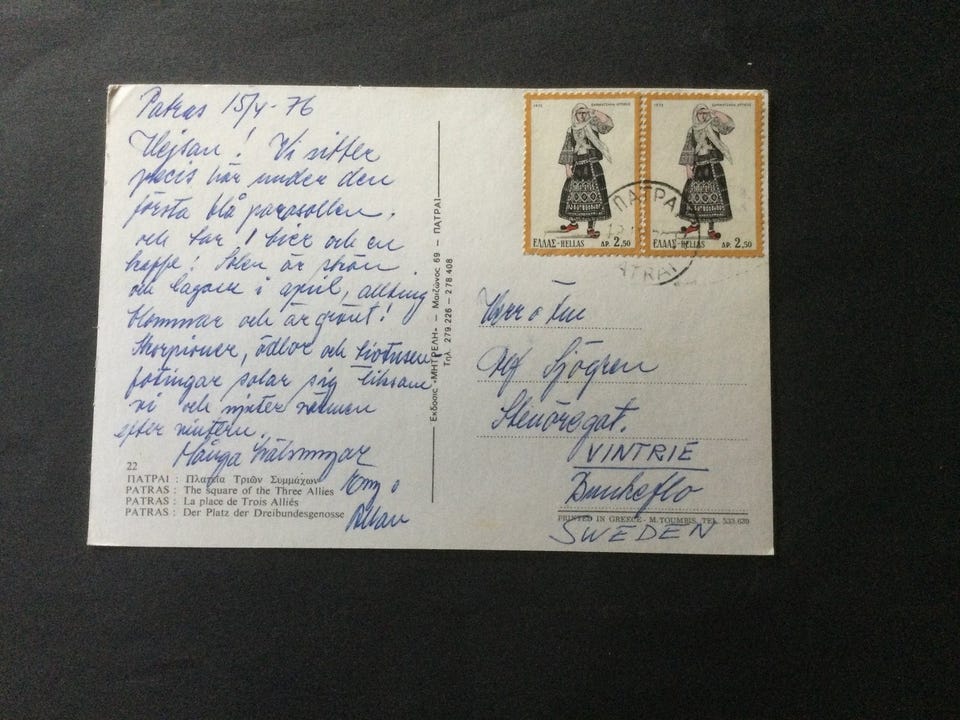 Patras 15/4-76
Hejsan! Vi sitter
precis här under den
första blå parasollen.
och tar 1 bier och en
kaffe! Solen är skön
och lagom i april, allting
blommar och är grönt!
Skorpioner, ödlor och tvotusen
fotingar solar sig liksom
vi och njuter värmen
efter vintern.
Många hälsningar
Allan
22
ΠΑΤΡΑΙ : Πλατεία Τριῶν Συμμάχων
PATRAS : The square of the Three Allies
PATRAS : La place de Trois Alliés
PATRAS : Der Platz der Dreibundesgenosse
Ἐκδοσις «ΜΗΤΡΕΛΗ» — Μαιζῶνος 69 — ΠΑΤΡΑΙ
Τηλ. 279.226 - 278.408
1972
ΕΛΛΑΣ-HELLAS ΔΡ. 2,50
1972
ΕΛΛΑΣ-HELLAS ΔΡ. 2,50
ΠΑΤΡΑΙ
PATRAI
Herr o Fru
Alf Sjögren
Stenörsgat.
VINTRIE
Bunkeflo
PRINTED IN GREECE - M. TOUMBIS, TEL. 533.639
SWEDEN